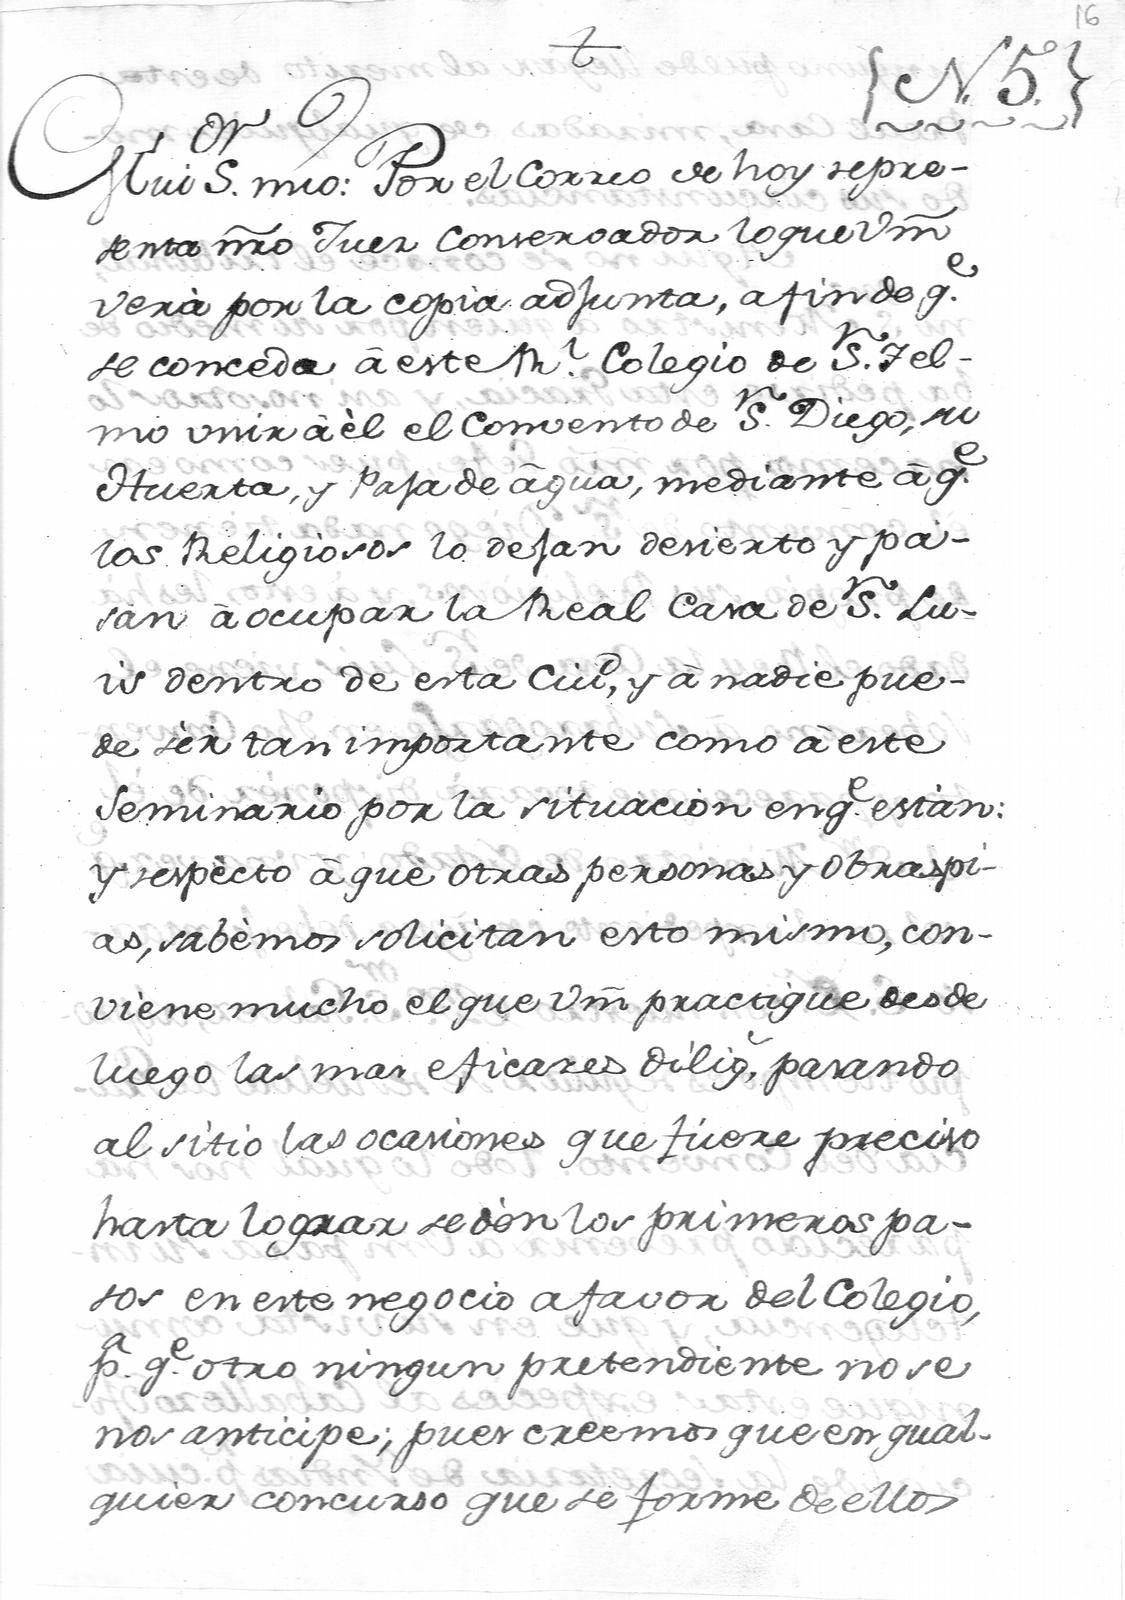 16
{N. 5.}
Mui S.or mio: Por el Correo de hoy repre-
senta ñro Juez Conservador loque Vm̃
verà por la copia adjunta, afin de q.e
se conceda â este Rl. Colegio de S.n Tel-
mo vnir â èl el Convento de S.n Diego, su
Huerta, y Paja de âgua, mediante â q.e
los Religiosos lo dejan desierto y pa-
san â ocupar la Real Casa de S.n Lu-
is dentro de esta Ciud, y â nadie pue-
de sèr tan importante como â este
Seminario por la situacion en q.e estàn:
y respècto â que otras personas y obras pi-
as, sabèmos solicitan esto mismo, con-
viene mucho el que Vm̃ practique desde
luego las mas eficazes dilig.s, pasando
al sitio las ocasiones que fúere preciso
hasta lograr se dèn los primeros pa-
sos en este negocio a favor del Colegio,
p.a q.e otro ningun pretendiente no se
nos anticipe; pues creemos que en qual-
quier concurso que se forme de ellos